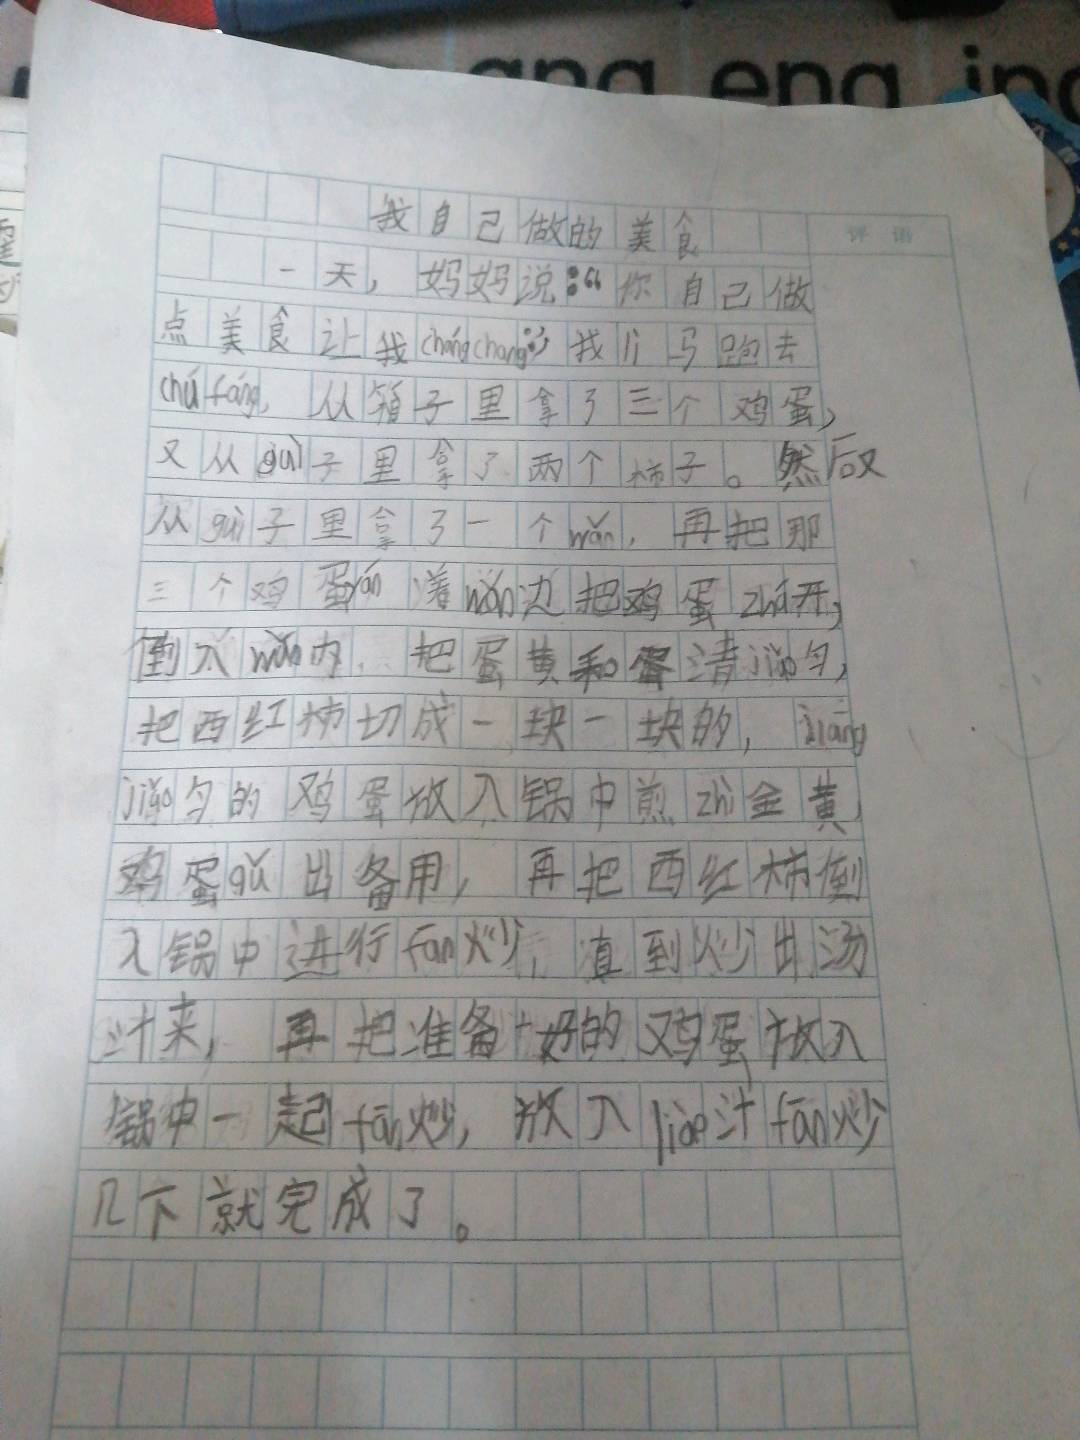 ang eng ing
评语
我自己做的美食
一天，妈妈说：“你自己做
点美食让我chángchang”我lì马跑去
chúfáng，从箱子里拿了三个鸡蛋，
又从guì子里拿了两个柿子。然后又
从guì子里拿了一个wǎn，再把那
三个鸡蛋yán着wǎn边把鸡蛋zhá开，
倒入wǎn内，把蛋黄和蛋清jiǎo匀，
把西红柿切成一块一块的，jiāng
jiǎo匀的鸡蛋放入锅中煎zhì金黄，
鸡蛋gǔ出备用，再把西红柿倒
入锅中进行fān炒，直到炒出汤
汁来，再把准备好的鸡蛋放入
锅中一起fān炒，放入liào汁fān炒
几下就完成了。